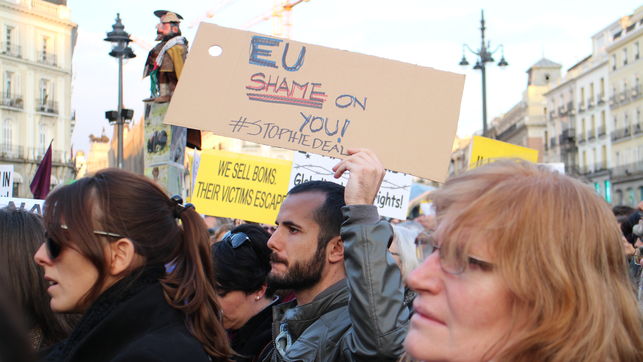 EU
SHAME ON
YOU!
#STOPTHEDEAL
WE SELL BOMS.
THEIR VICTIMS ESCAPE
Global
rights!